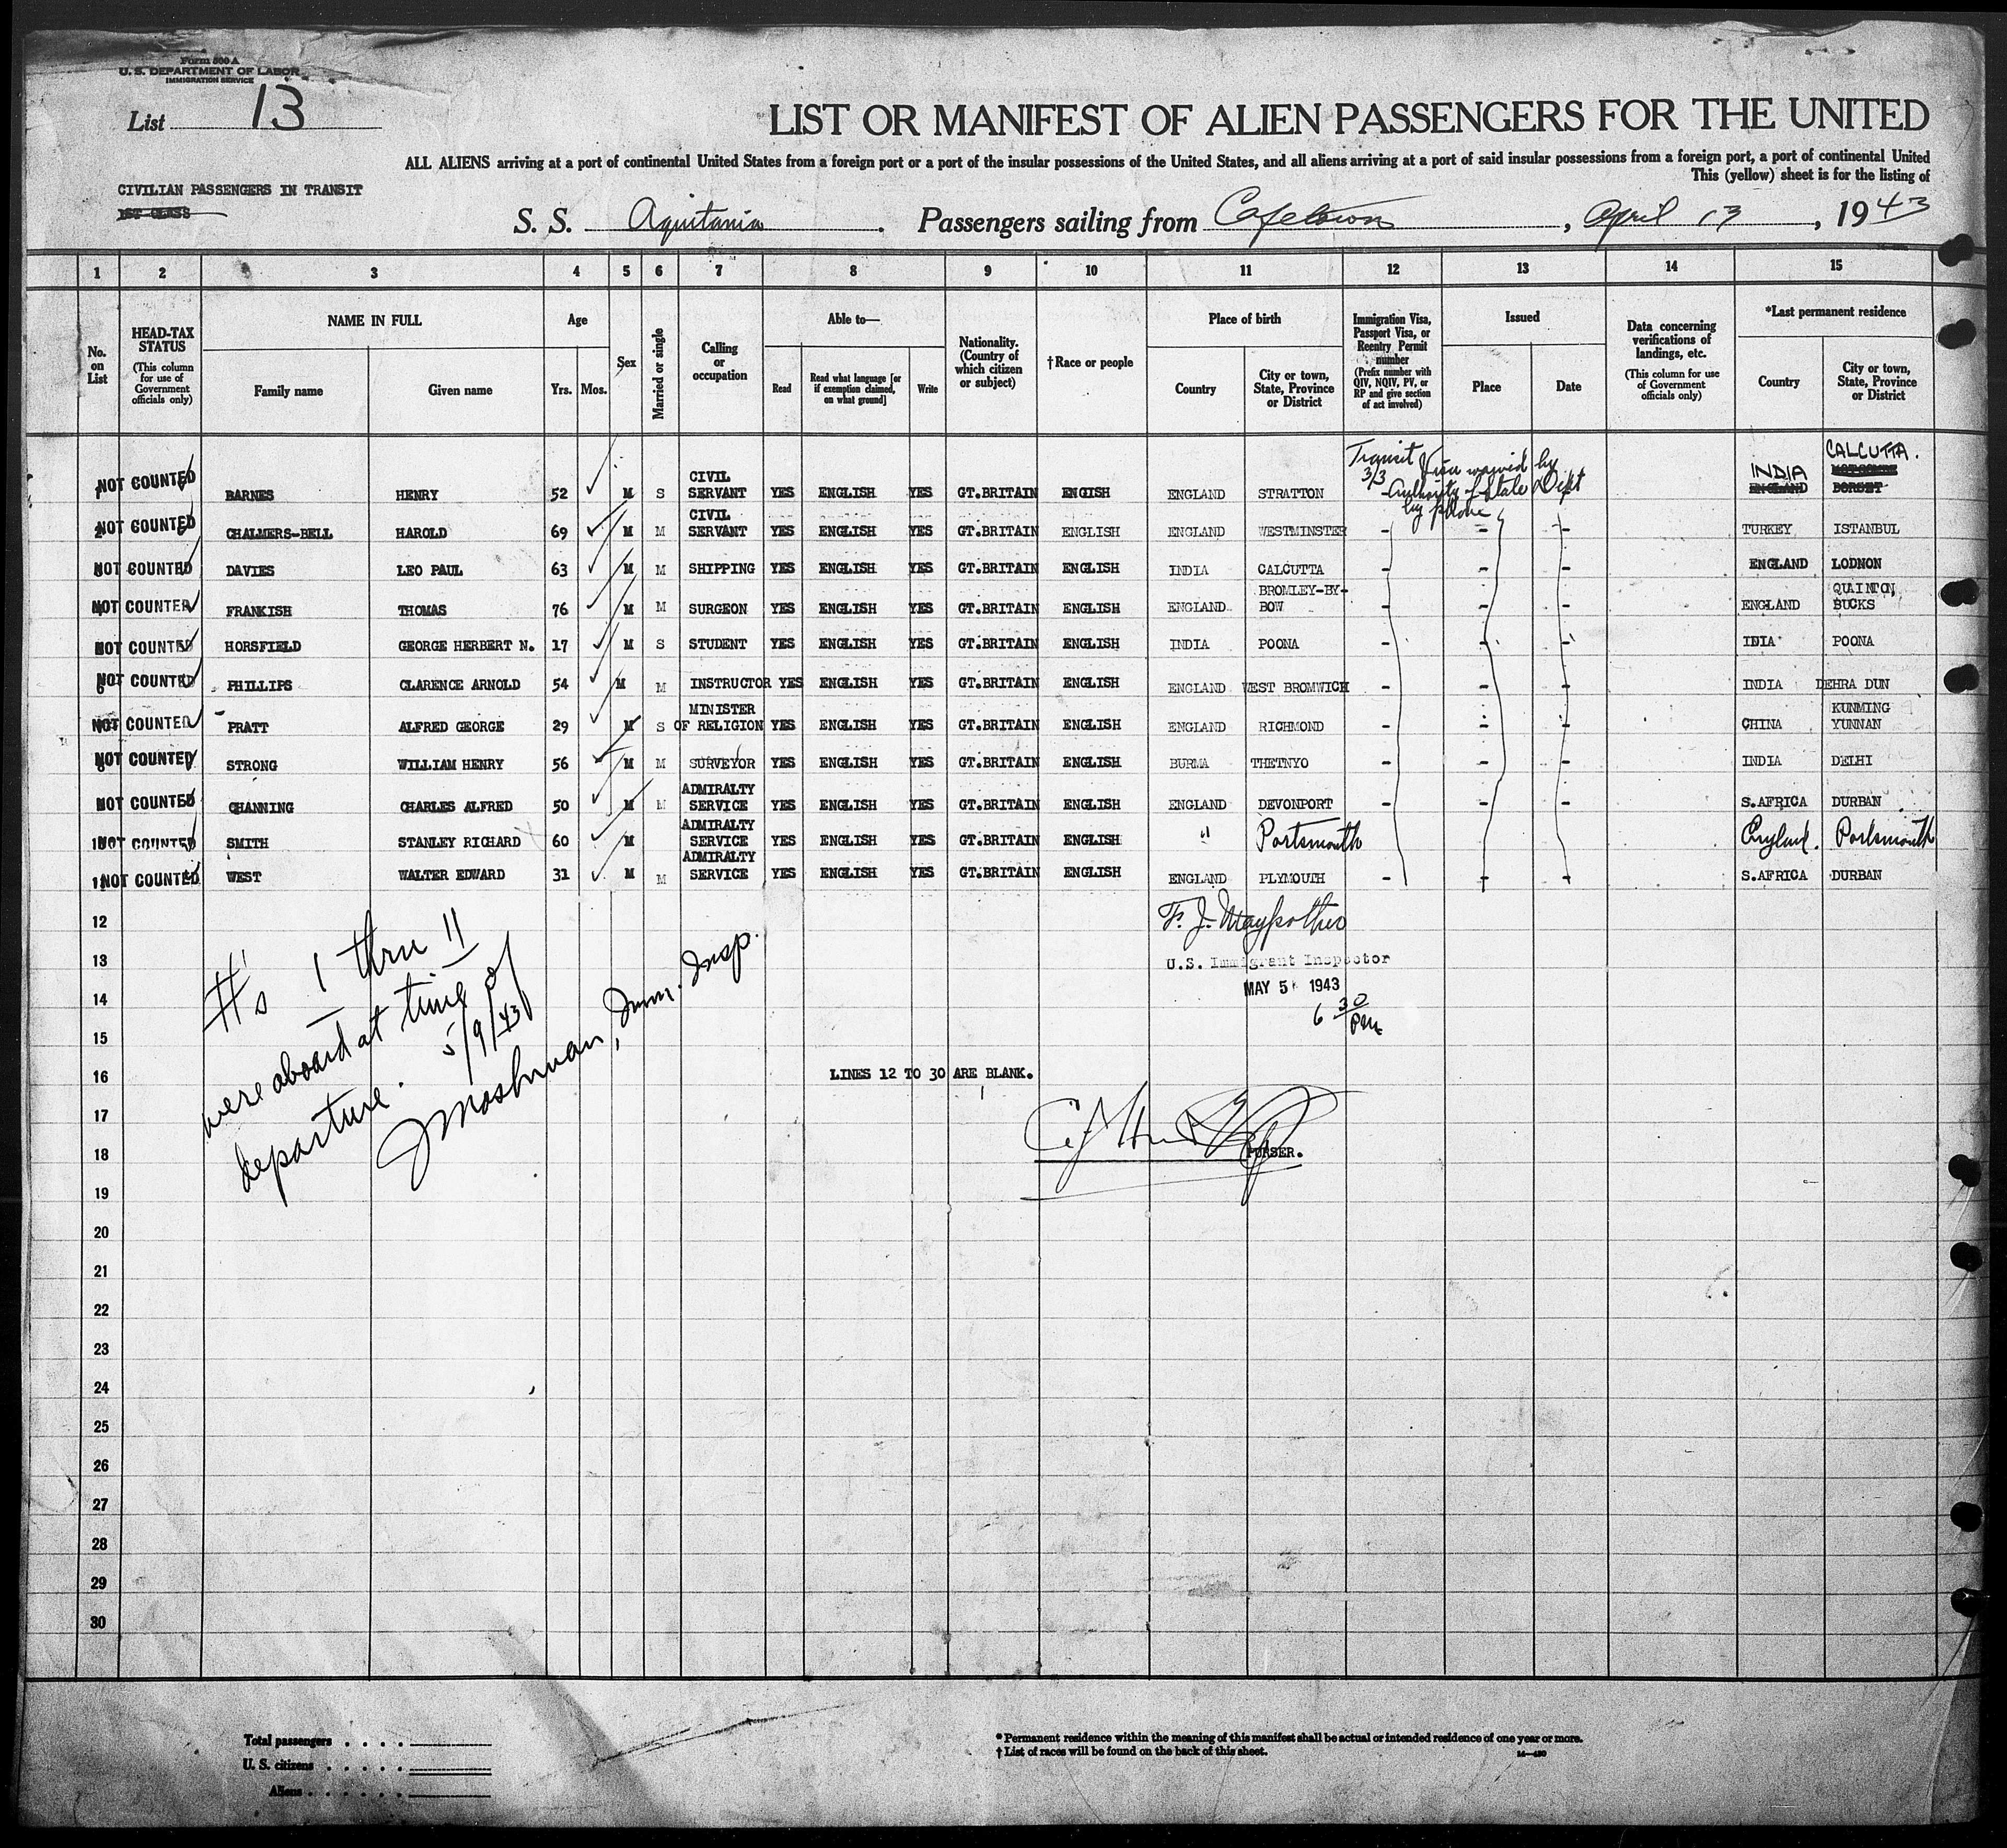 Form 500 A
U. S. DEPARTMENT OF LABOR
IMMIGRATION SERVICE
List 13
LIST OR MANIFEST OF ALIEN PASSENGERS FOR THE UNITED
ALL ALIENS arriving at a port of continental United States from a foreign port or a port of the insular possessions of the United States, and all aliens arriving at a port of said insular possessions from a foreign port, a port of continental United
This (yellow) sheet is for the listing of
CIVILIAN PASSENGERS IN TRANSIT
1ST CLASS
S. S. Aquitania. Passengers sailing from Capetown, April 13, 1943
1 2 3 4 5 6 7 8 9 10 11 12 13 14 15
No. on List
HEAD-TAX STATUS (This column for use of Government officials only)
NAME IN FULL
Family name
Given name
Age
Yrs. Mos.
Sex
Married or single
Calling or occupation
Able to—
Read
Read what language [or if exemption claimed, on what ground]
Write
Nationality. (Country of which citizen or subject)
†Race or people
Place of birth
Country
City or town, State, Province or District
Immigration Visa, Passport Visa, or Reentry Permit number (Prefix number with QIV, NQIV, PV, or RP and give section of act involved)
Issued
Place
Date
Data concerning verifications of landings, etc. (This column for use of Government officials only)
*Last permanent residence
Country
City or town, State, Province or District
Transit Visa waived by
3/3 Authority of State Dept
by phone
1 NOT COUNTED BARNES HENRY 52 M S CIVIL SERVANT YES ENGLISH YES GT.BRITAIN ENGISH ENGLAND STRATTON INDIA ENGLAND CALCUTTA. DORSET
2 NOT COUNTED CHALMERS-BELL HAROLD 69 M M CIVIL SERVANT YES ENGLISH YES GT.BRITAIN ENGLISH ENGLAND WESTMINSTER - - - TURKEY ISTANBUL
3 NOT COUNTED DAVIES LEO PAUL 63 M M SHIPPING YES ENGLISH YES GT.BRITAIN ENGLISH INDIA CALCUTTA - - - ENGLAND LODNON
4 NOT COUNTED FRANKISH THOMAS 76 M M SURGEON YES ENGLISH YES GT.BRITAIN ENGLISH ENGLAND BROMLEY-BY-BOW - - - ENGLAND QUINTON, BUCKS
NOT COUNTED HORSFIELD GEORGE HERBERT N. 17 M S STUDENT YES ENGLISH YES GT.BRITAIN ENGLISH INDIA POONA - - - INIA POONA
6 NOT COUNTED PHILLIPS CLARENCE ARNOLD 54 M M INSTRUCTOR YES ENGLISH YES GT.BRITAIN ENGLISH ENGLAND WEST BROMWICH - - - INDIA DEHRA DUN
NOT COUNTED PRATT ALFRED GEORGE 29 M S MINISTER OF RELIGION YES ENGLISH YES GT.BRITAIN ENGLISH ENGLAND RICHMOND - - - CHINA KUNMING YUNNAN
8 NOT COUNTED STRONG WILLIAM HENRY 56 M M SURVEYOR YES ENGLISH YES GT.BRITAIN ENGLISH BURMA THETNYO - - - INDIA DELHI
NOT COUNTED CHANNING CHARLES ALFRED 50 M M ADMIRALTY SERVICE YES ENGLISH YES GT.BRITAIN ENGLISH ENGLAND DEVONPORT - - - S.AFRICA DURBAN
10 NOT COUNTED SMITH STANLEY RICHARD 60 M ADMIRALTY SERVICE YES ENGLISH YES GT.BRITAIN ENGLISH " Portsmouth England. Portsmouth
11 NOT COUNTED WEST WALTER EDWARD 31 M M ADMIRALTY SERVICE YES ENGLISH YES GT.BRITAIN ENGLISH ENGLAND PLYMOUTH - - - S.AFRICA DURBAN
12
13
14
15
16
17
18
19
20
21
22
23
24
25
26
27
28
29
30
#'s 1 thru 11
were aboard at time of
departure. 5/9/43
J Moshman, Imm. Insp.
U.S. Immigrant Inspector
MAY 5 1943
6 30 PM
LINES 12 TO 30 ARE BLANK.
PURSER.
Total passengers . . . .
U. S. citizens . . . . .
Aliens . . . . . .
* Permanent residence within the meaning of this manifest shall be actual or intended residence of one year or more.
† List of races will be found on the back of this sheet.